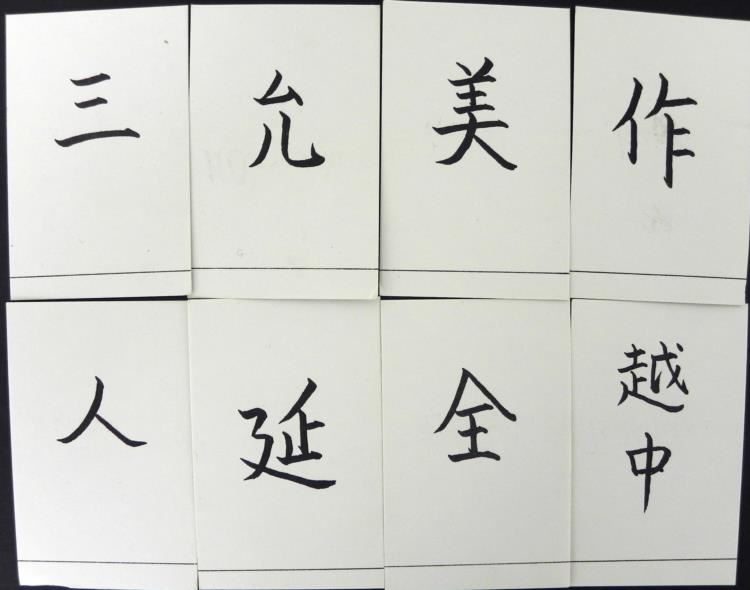 三
允
美
作
人
延
全
越中